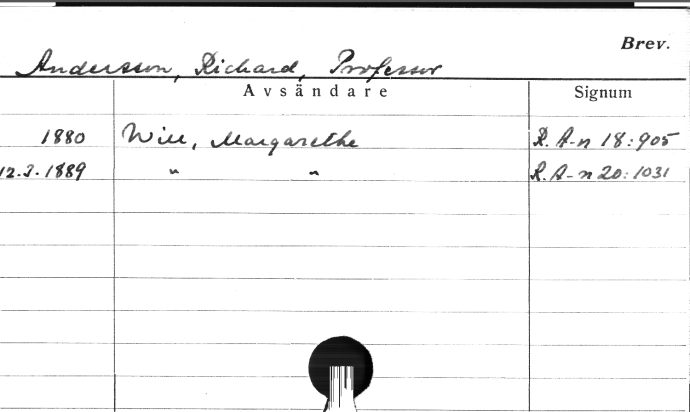 Brev.
Andersson, Richard, Professor
Avsändare Signum
1880 Will, Margarethe R. A-n 18:905
12.3.1889 " " R. A-n 20:1031